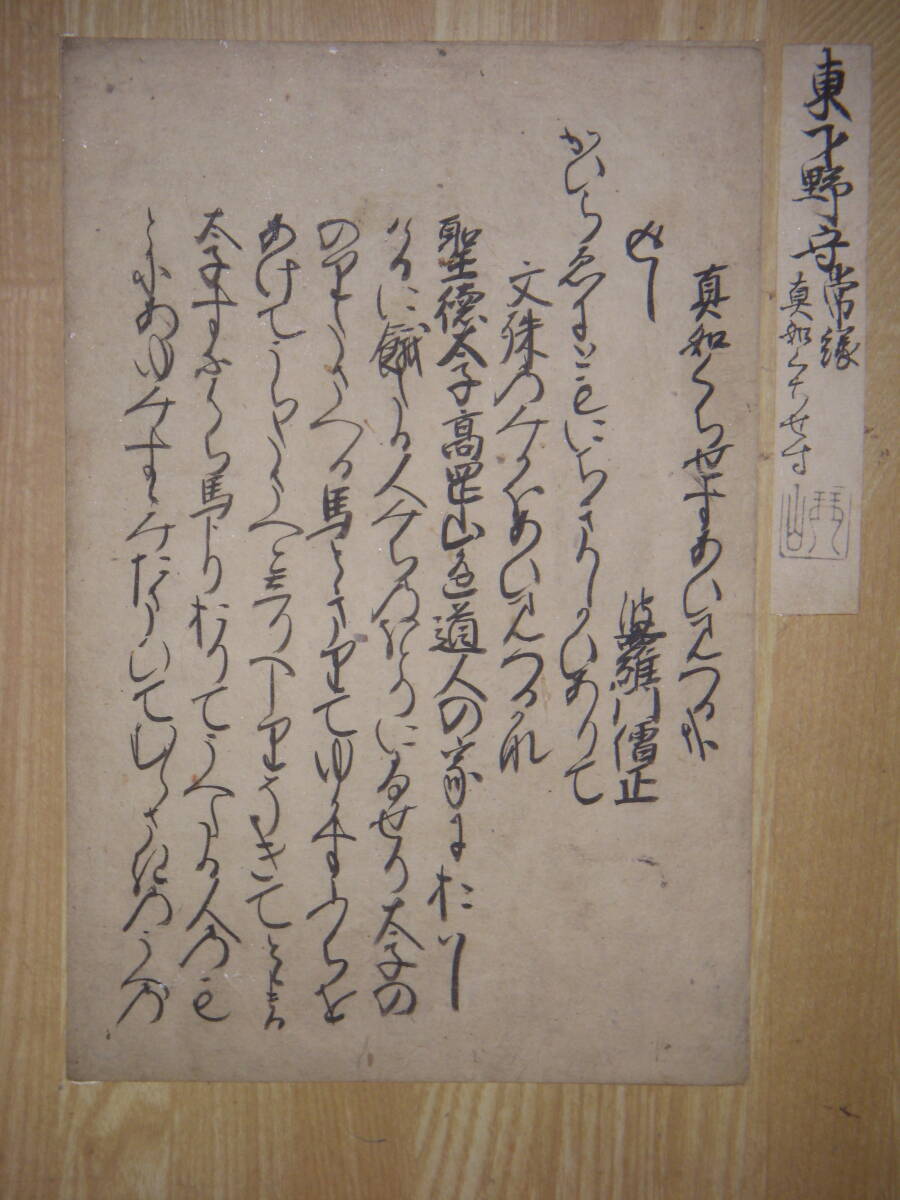 東下野守常縁
真如くちせす
琴山
真如くちせすあいみつるかな
返し
婆羅門僧正
かひらゑにともにちきりしかひありて
文殊のみかほあいみつるかな
聖徳太子高岡山辺道人の家におはし
けるに餓たる人みちのほとりにふせり太子の
のりたまへる馬とゝまりてゆかすふちを
あけてうちたまへとしりへしりそきてとゝまる
太子すなはち馬よりおりてうへたる人のも
とにあゆみすゝみたまいてむらさきのうへの